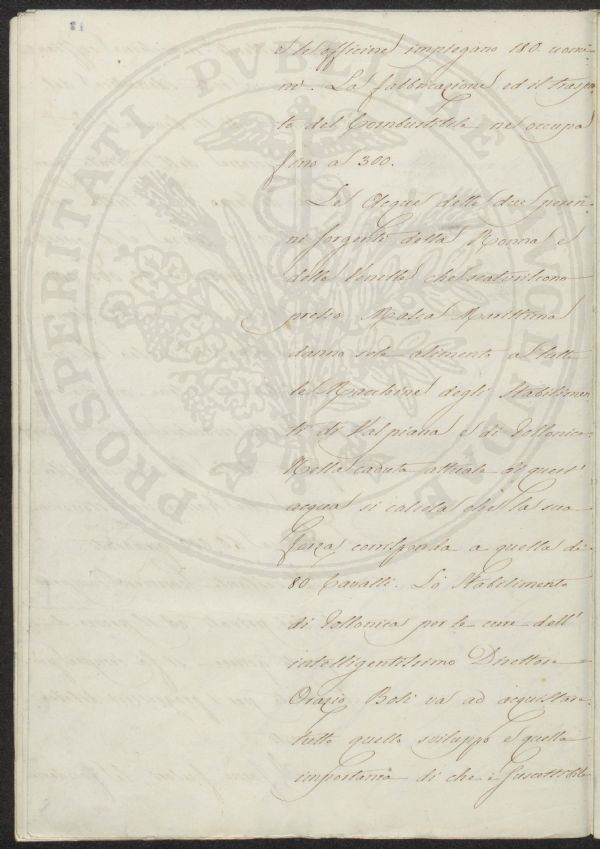 e le officine impiegano 180. uomi-
ni. La fabbricazione ed il traspor-
to del Combustibile ne occupa
fino a 300.
Le Acque delle due peren-
ni sorgenti della Ronna e
delle Venelle che scaturiscono
presso Massa Marittima
danno sole alimento a tutte
le Macchine degli Stabilimen
ti di Valpiana e di Follonica.
Nella caduta attuale di quest'
acqua si calcola che la sua
forza corrisponda a quella di
80. Cavalli. Lo Stabilimento
di Follonica per le cure dell'
intelligentissimo Direttore
Orazio Bosi va ad acquistare
tutto quello sviluppo e quella
importanza di che è suscettibile
PROSPERITATI PUBLICAE AUGENDAE